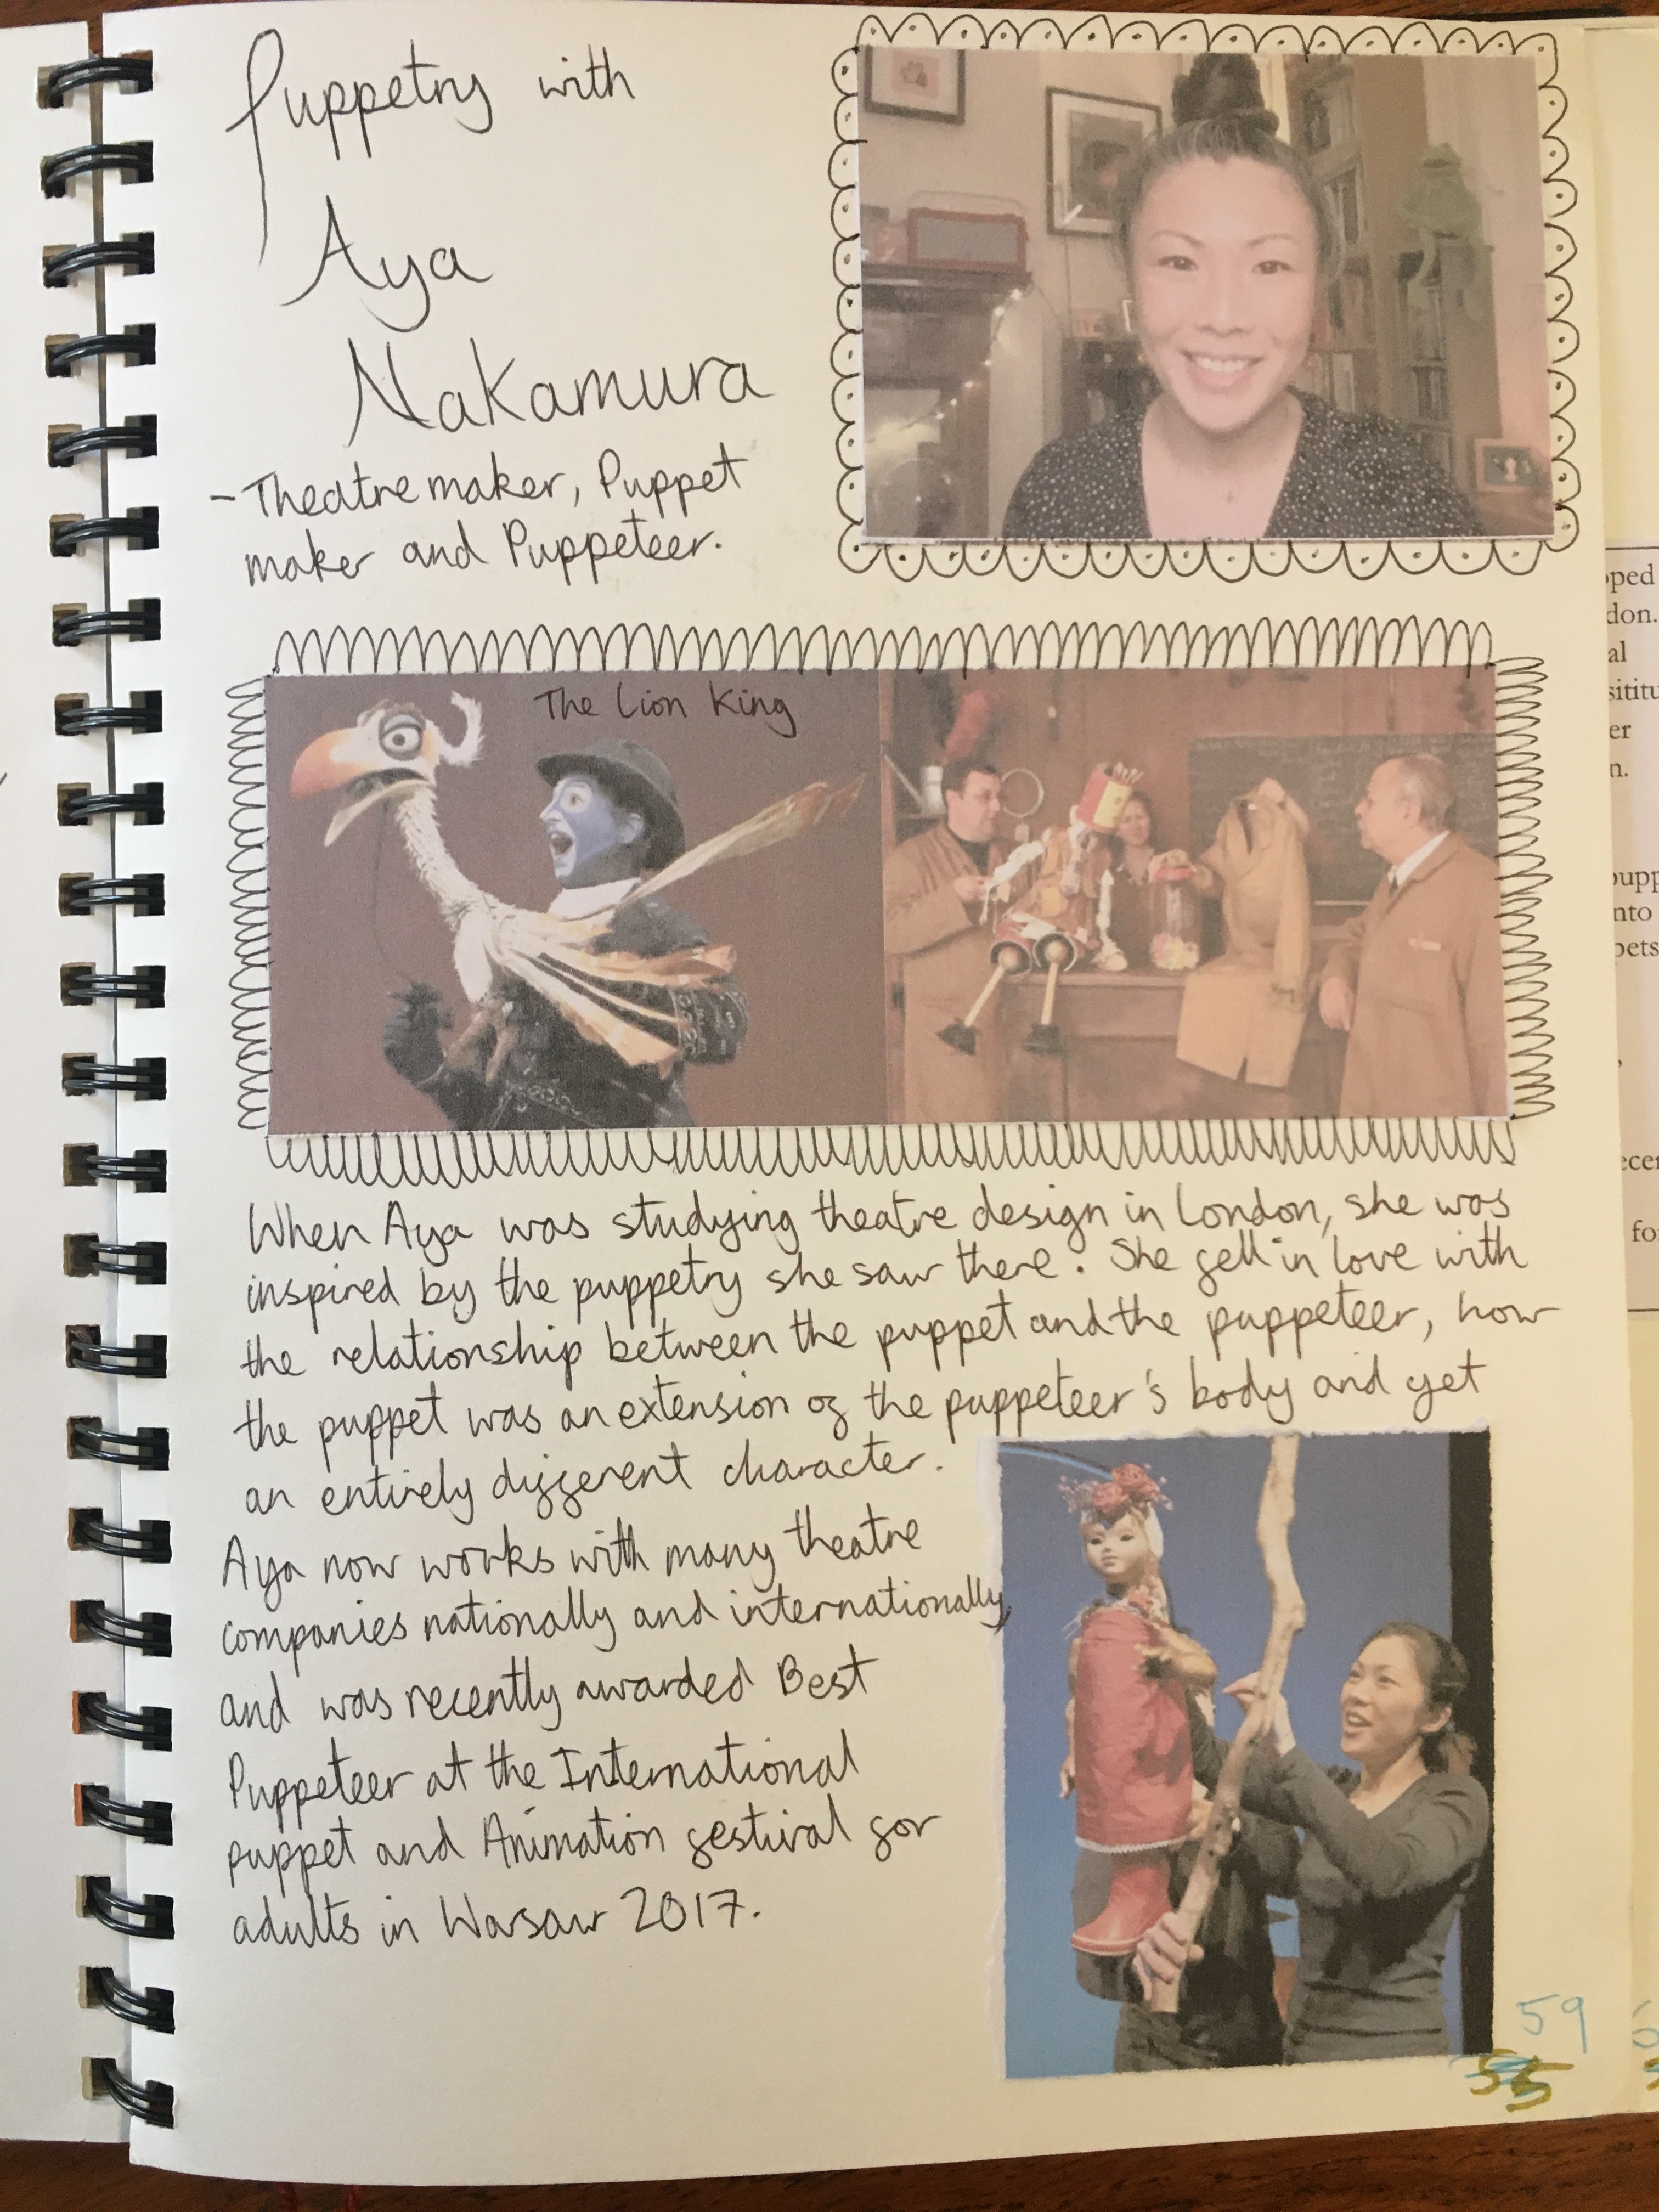 Puppetry with
Aya
Nakamura
- Theatre maker, Puppet
maker and Puppeteer.
The Lion King
When Aya was studying theatre design in London, she was
inspired by the puppetry she saw there. She fell in love with
the relationship between the puppet and the puppeteer, how
the puppet was an extension of the puppeteer's body and yet
an entirely different character.
Aya now works with many theatre
companies nationally and internationally,
and was recently awarded Best
Puppeteer at the International
puppet and Animation festival for
adults in Warsaw 2017.
59
55
don.
al
er
n.
nto
pets
for